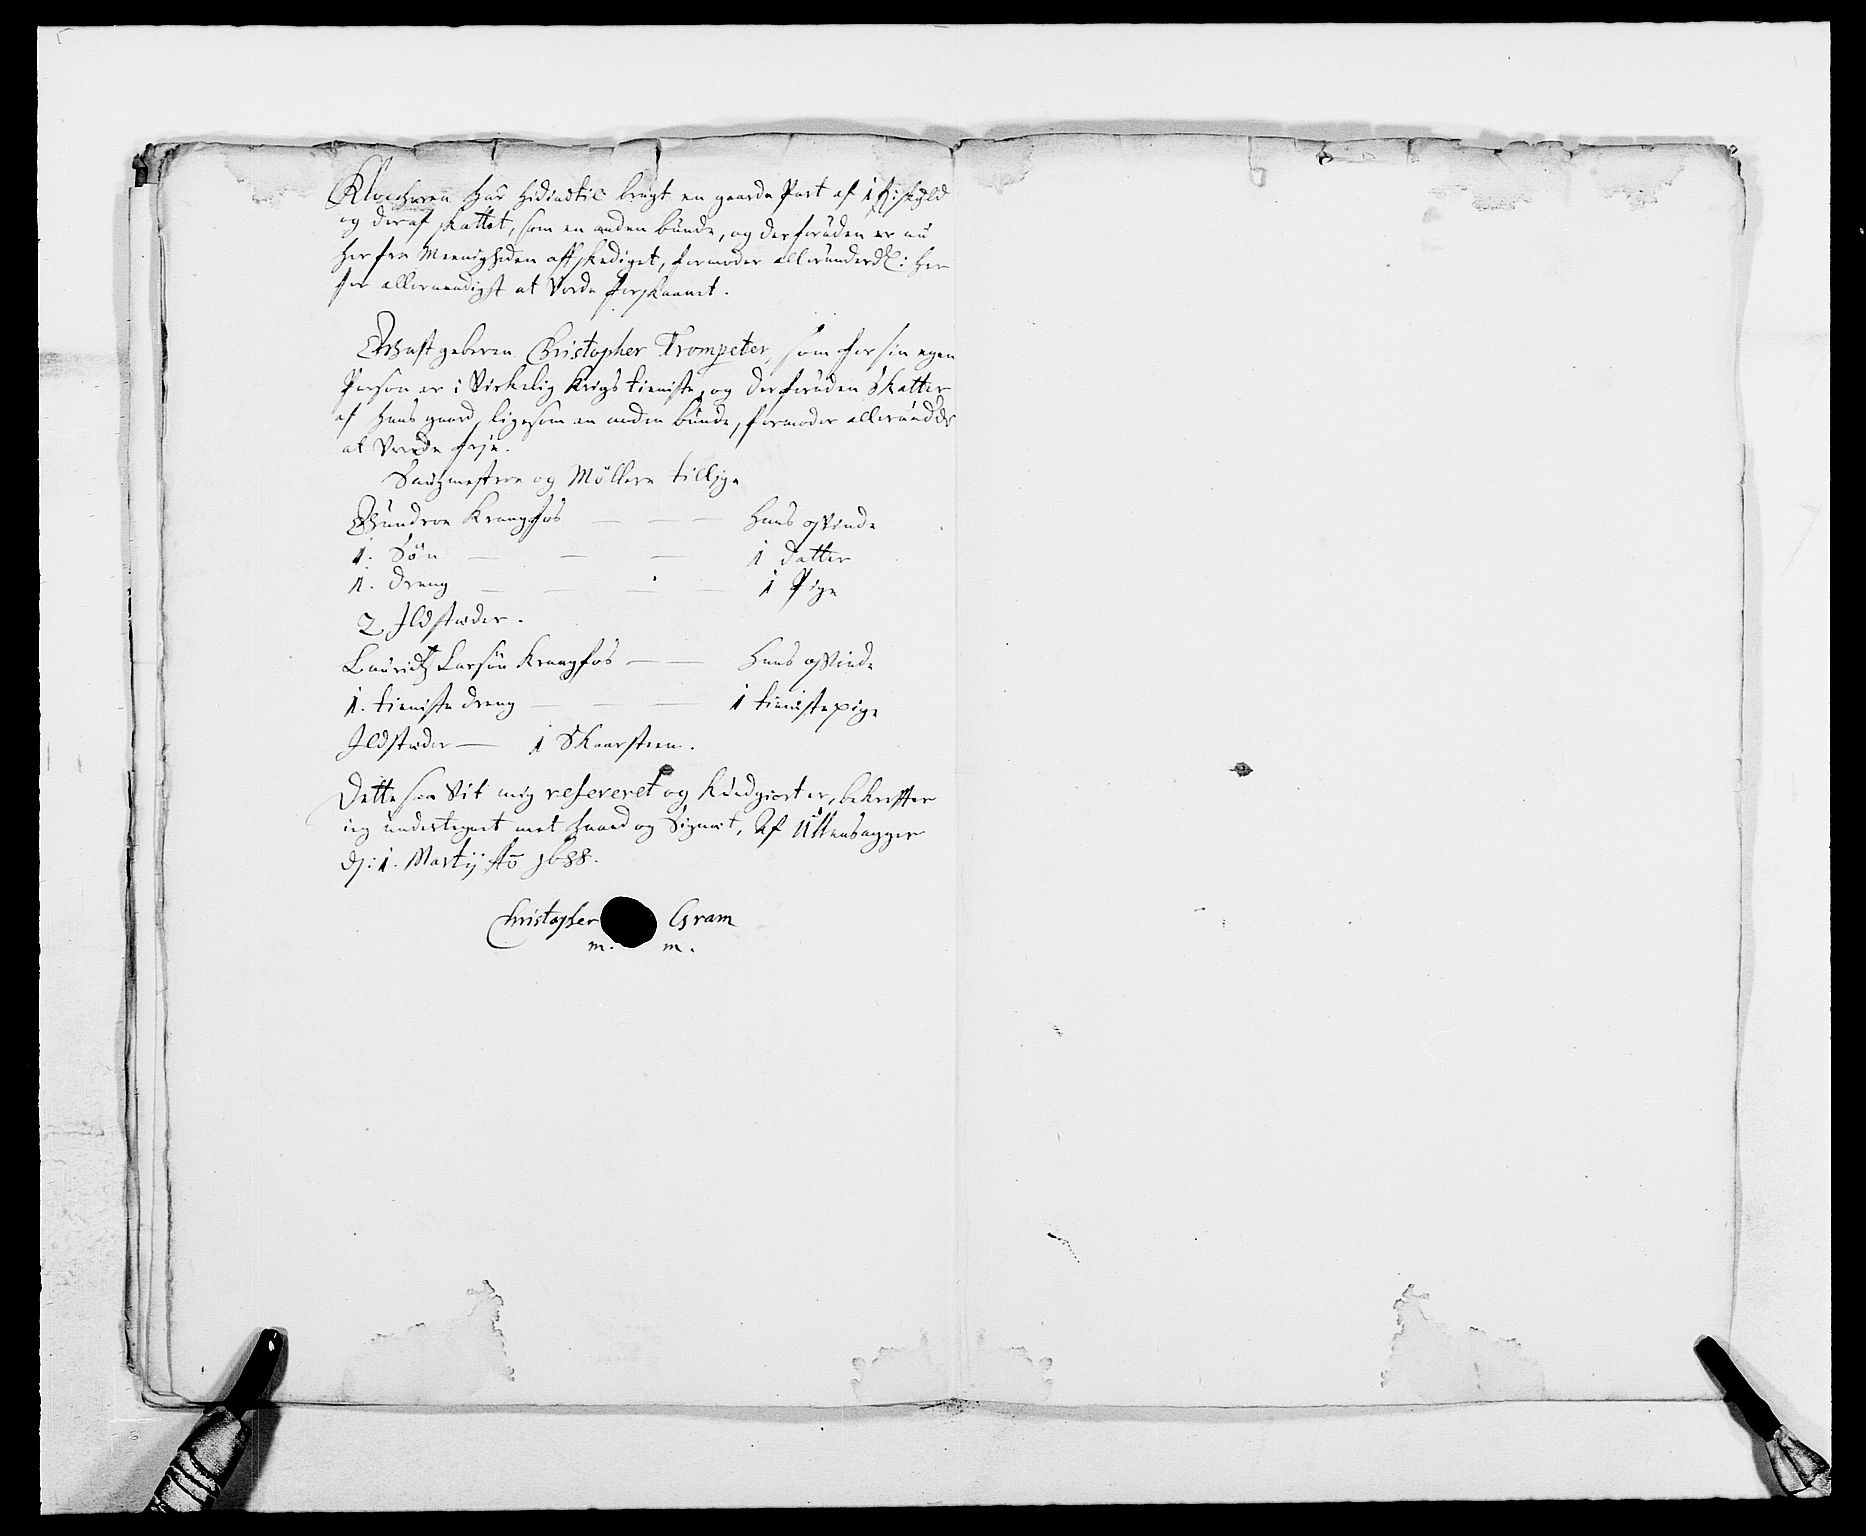 Klocheren har hidindtil brugt en gaarde Part af 1 Hs: skyld
og deraf skattet, som en anden bunde, og desforuden er nu
her fra Meenigheden affskediget, formoder allerunderdl: her
for allernaadigst at Vorde forskaanet.
Christopher Trompeter, som for sin egen
Person er i Virkelig Krigs tieniste, og desforuden Skatter
af hans gaard, ligesom en anden bunde, formoder allerundds
at Vorde frje.
Saugmestere og Möllere tillige
Gundroe Kraagfos — — — hans qvinde
1. Søn — — — 1 datter
1. dreng — — — — 1 Pige
2 Ildstæder.
Lauridtz Larsøn Kraagfos — — hans qvinde
1. tieniste dreng — — — 1 tienistepige
Ildstæder — 1 Skaarsteen.
Dette saa Vit mig refereret og Kundgiort er, bekreffter
ieg underteignet met haand og Signet, Af Ullensagger
dj: 1. Martij Ao 1688.
Christopher Gram
m. m.